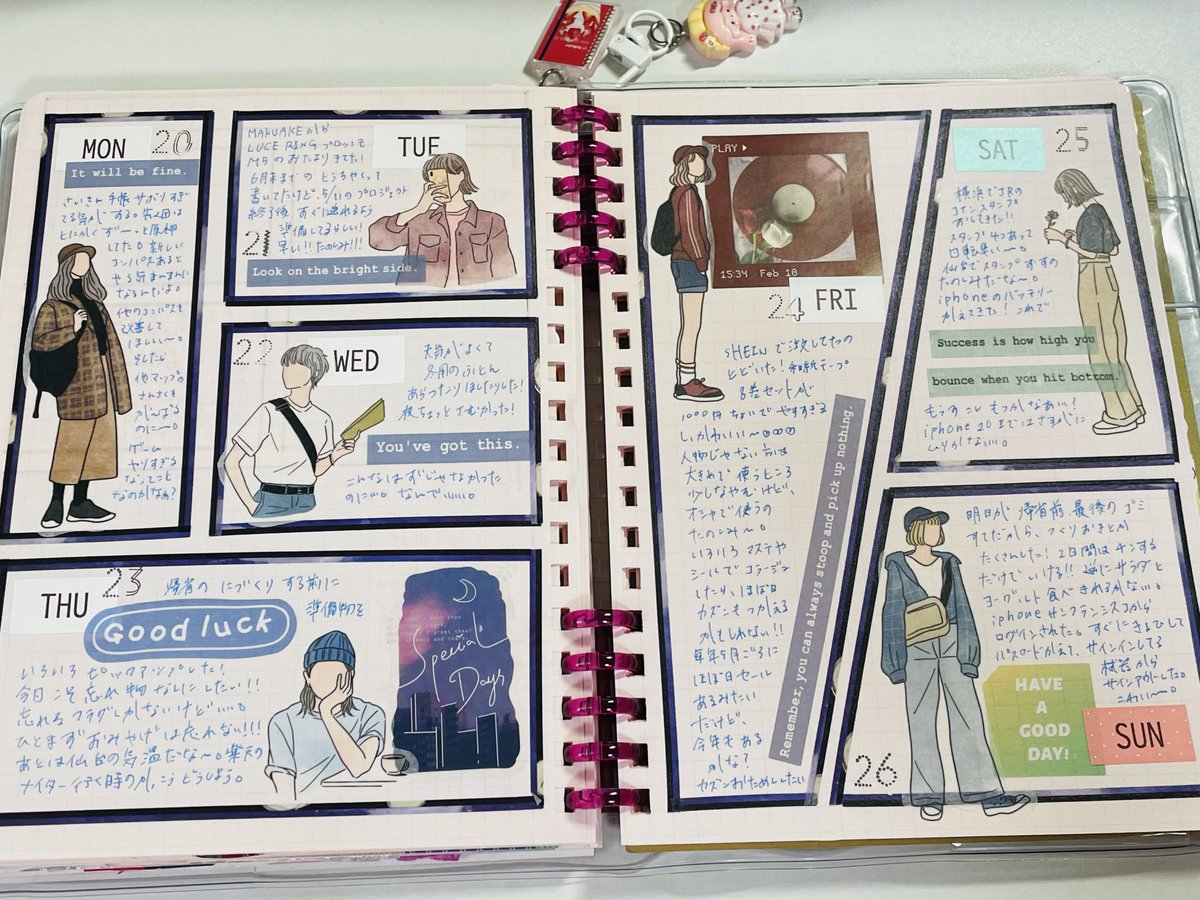 MON 20
It will be fine.
さいきん手帳サボりすぎ
てる気がする。
とにかくずーっと原神
してた。新しい
コンパスあると
やる気まんまんに
なるんだよ。
他のコンパスも
改善して
ほしい〜。
そしたら
他マップの
たんさくも
がんばる
のに〜。
ゲーム
やりすぎる
なってこと
なのかなぁ?
TUE
MAKUAKEから
LUCE RING プロッシモ
M5のおたよりきてた!
6月末までの とうちゃくって
書いてたけど、5/11のプロジェクト
終了後 すぐに送れるよう
準備してるらしい!
早い!!たのしみ!!!
21
Look on the bright side.
22 WED
天気がよくて
冬用のふとん
あらったりほしたりした!
夜ちょっとさむかった!
You've got this.
こんなはずじゃなかった
のに。。。なんで。。。。。
THU 23
帰省の にづくり する前に
準備物を
Good luck
いろいろ ピックアップした!
今日こそ忘れ物なしにしたい!!
忘れるフラグしかないけど。。。
ひとまずおみやげは忘れない!!!
あとは仙台の気温だな〜。楽天の
ナイター行く時のかっこうどうしよう。
Special
Days
PLAY
15:34 Feb 18
24 FRI
SHEINで注文してたの
とどいた!和紙テープ
8巻セットが
1000円ちょいでやすすぎる
しかわいい〜
人物じゃない方は
大きめで使うところ
少しなやむけど、
オシャで使うの
たのしみ〜。
いろいろ マステや
シールでコラージュ
したり、ほぼ日
カズンもつかえる
かもしれない!!
毎年5月ごろに
ほぼ日セール
あるみたい
だけど、
今年もある
のかな?
カズンおためししたい
Remember, you can always stoop and pick up nothing.
SAT 25
横浜でJRの
コナンスタンプ
おしてきた!!
スタンプ4つあって
回転早い〜。
仙台でスタンプおすの
たのしみだな〜。
iphoneのバッテリー
かえてきた!これで
Success is how high you
bounce when you hit bottom.
もう少しもつかなあ。。?
iphone 20まではさすがに
ムリかな。。。。
明日が帰省前最後のゴミ
すてだから、つくりおきとか
たくさんした!2日間はチンする
だけでいける!!逆にサラダと
ヨーグルト食べきれるかな。。。
iphone サンフランシスコから
ログインされた。すぐにきょひして
パスワードかえて、サインインしてる
機器から
サインアウトした。
こわい〜。
HAVE
A
GOOD
DAY!
SUN
26